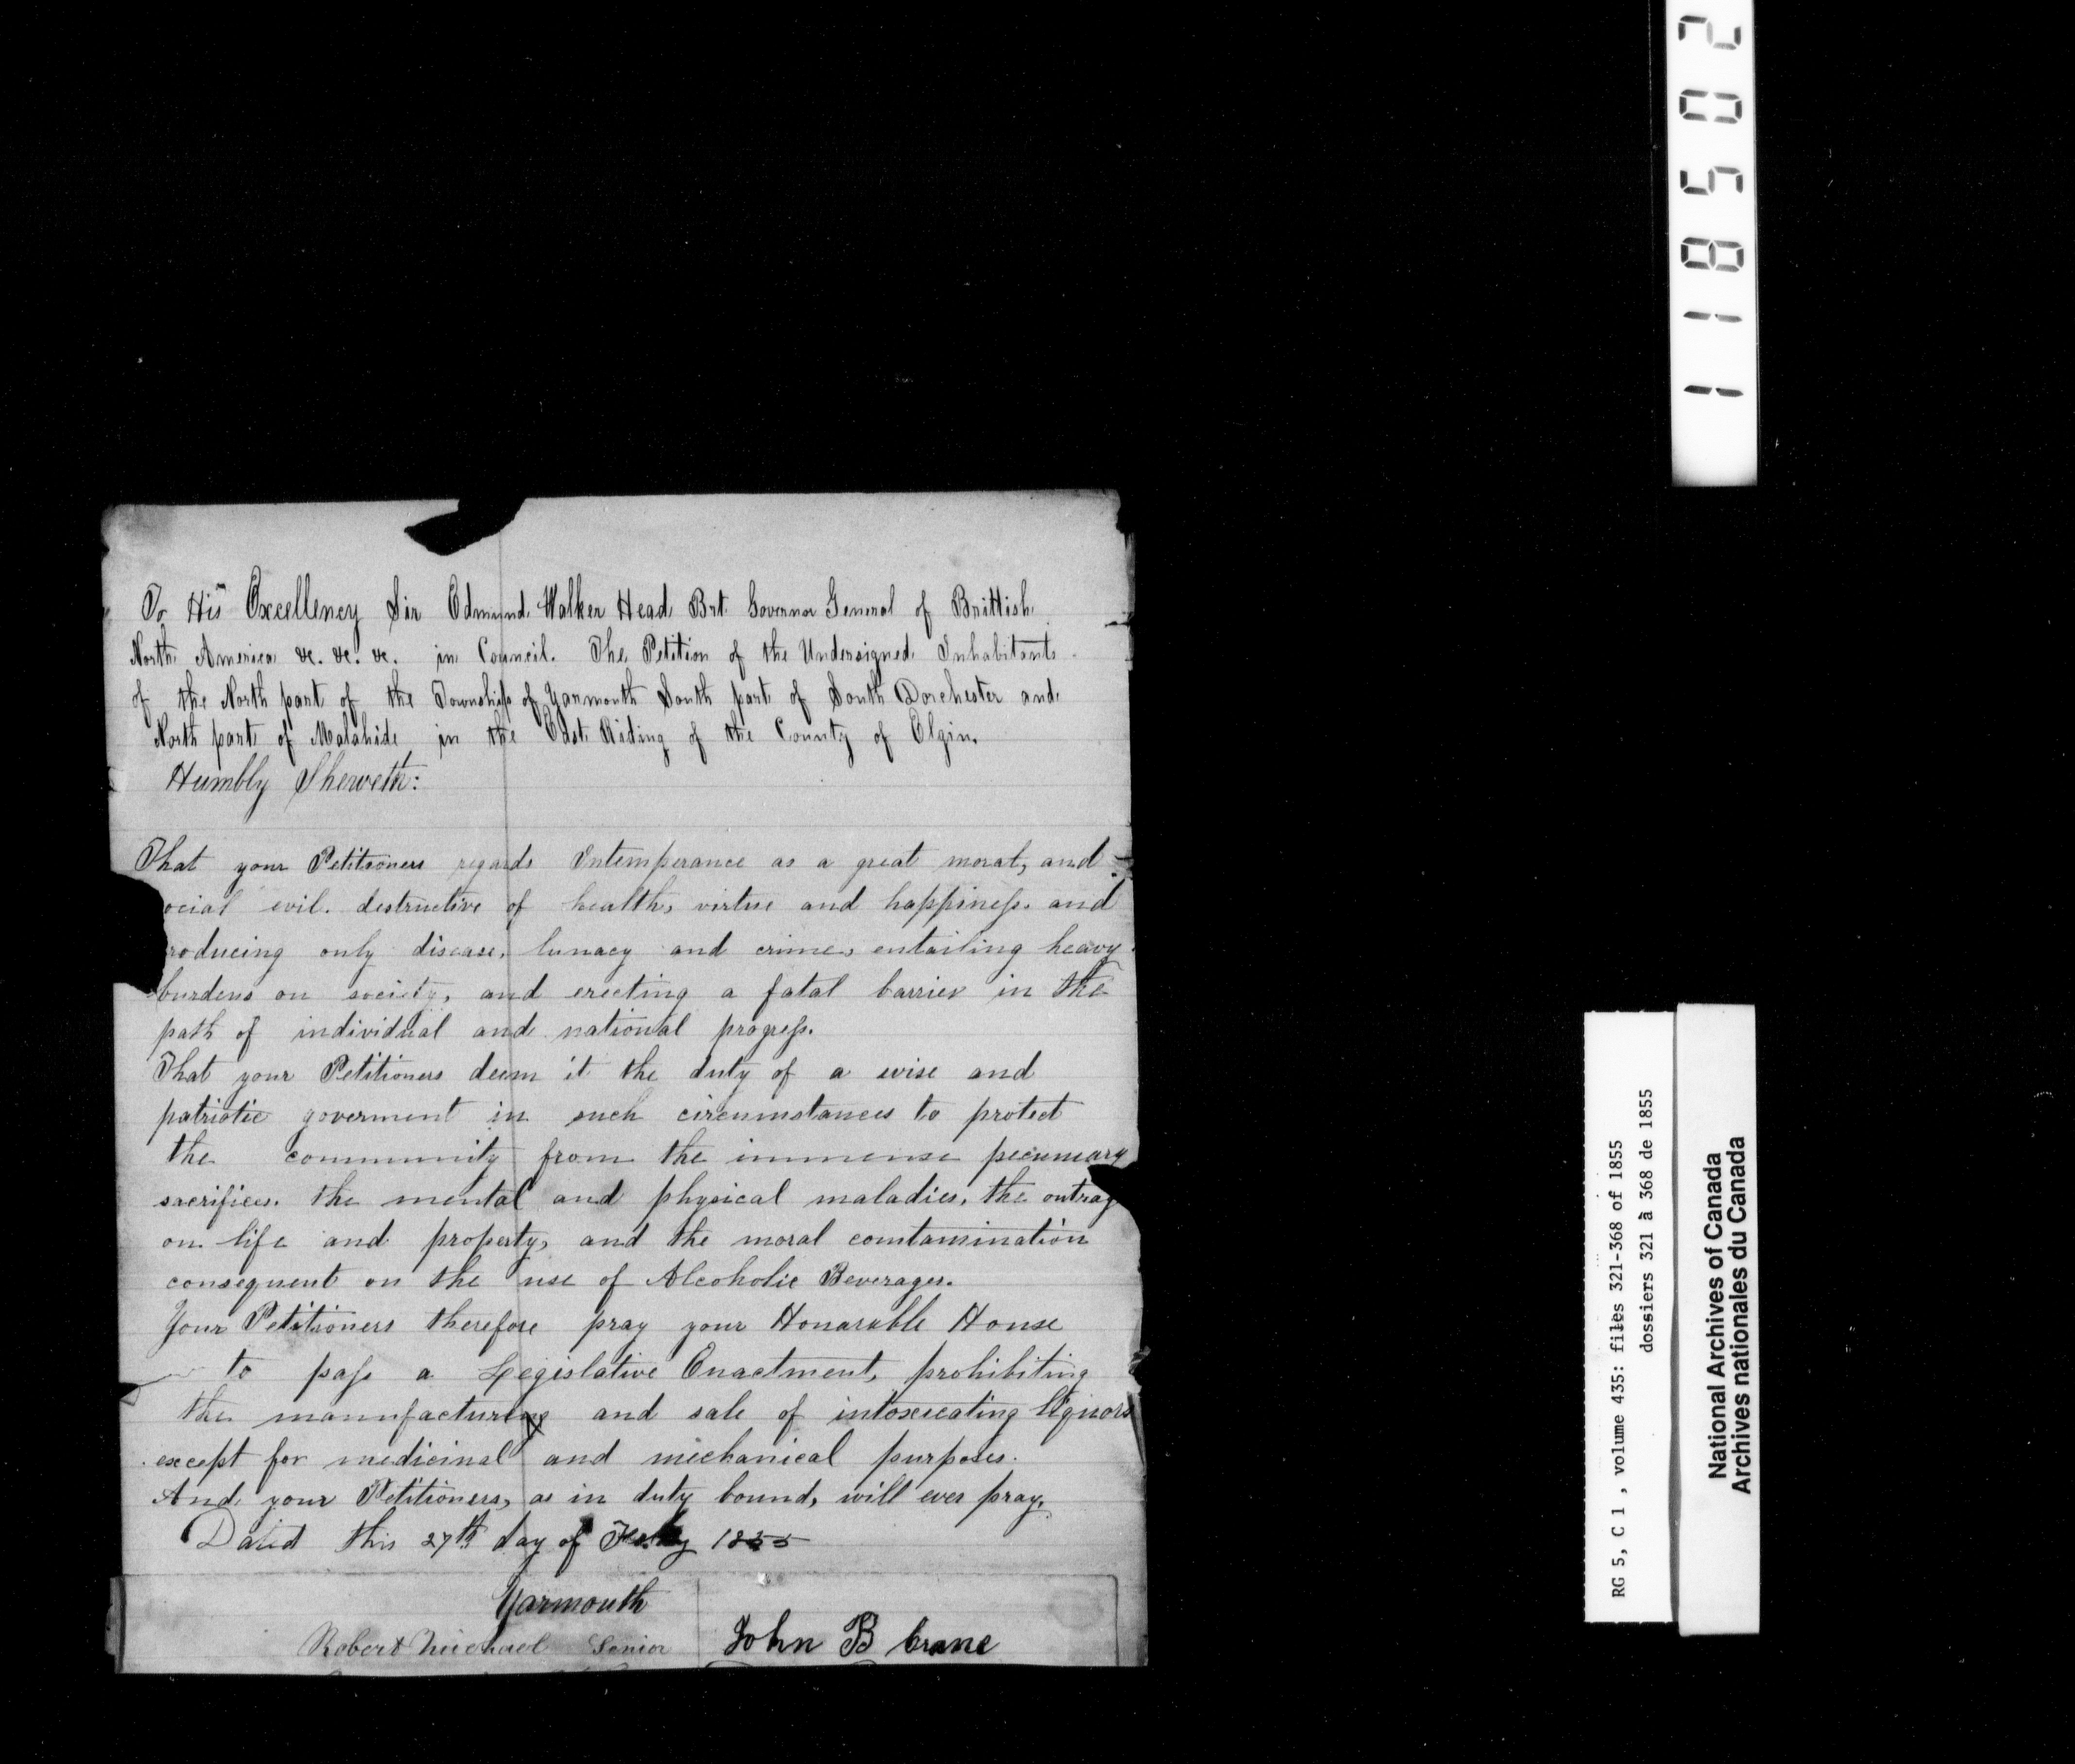 To His Excellency Sir Edmund Walker Head Brt Governor General of Brittish
North America &c. &c. &c. in Council. The Petition of the Undersigned Inhabitants
of the North part of the Township of Yarmouth South part of South Dorchester and
North part of Malahide in the East Riding of the County of Elgin.
Humbly Sheweth:
That your Petitioners regards Intemperance as a great moral, and
ocial evil. destructive of health, virtue and happiness. and
roducing only disease, lunacy and crime, entailing heavy
burdens on society, and erecting a fatal barrier in the
path of individual and national progress.
That your Petitioners deem it the duty of a wise and
patriotic goverment in such circumstances to protect
the community from the immense pecuneary
sacrifices. the mental and physical maladies, the outrag
on life and property, and the moral comtamination
consequent on the use of Alcoholic Beverages.
Your Petitioners therefore pray your Honarable House
to pass a Legislative Enactment, prohibiting
the manufactureing and sale of intoxicating liquors
except for medicinal and mechanical purposes.
And your Petitioners, as in duty bound, will ever pray.
Dated this 27th day of Feby 1855
Yarmouth
Robert Michael Senior John B Crane
118502
RG 5, C 1 , volume 435: files 321-368 of 1855
dossiers 321 à 368 de 1855
National Archives of Canada
Archives nationales du Canada